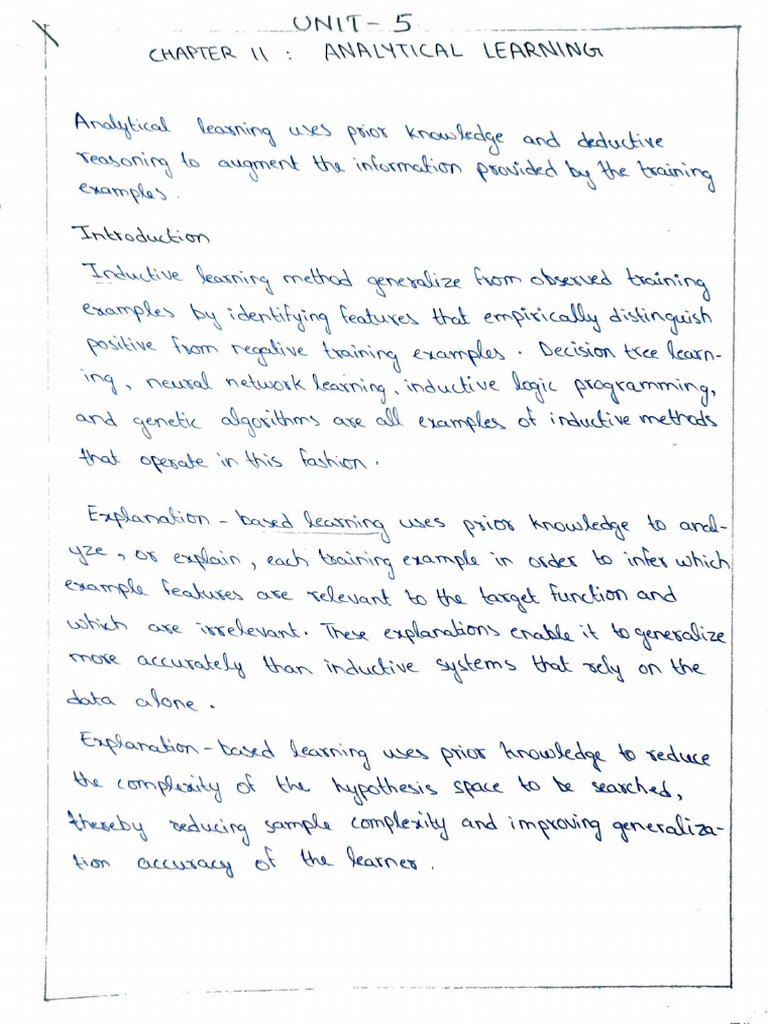 UNIT- 5
CHAPTER 11 : ANALYTICAL LEARNING
Analytical learning uses prior knowledge and deductive
reasoning to augment the information provided by the training
examples.
Introduction
Inductive learning method generalize from observed training
examples by identifying features that empirically distinguish
positive from negative training examples. Decision tree learn-
ing, neural network learning, inductive logic programming,
and genetic algorithms are all examples of inductive methods
that operate in this fashion.
Explanation-based learning uses prior knowledge to anal-
yze, or explain, each training example in order to infer which
example features are relevant to the target function and
which are irrelevant. These explanations enable it to generalize
more accurately than inductive systems that rely on the
data alone.
Explanation-based learning uses prior knowledge to reduce
the complexity of the hypothesis space to be searched,
thereby reducing sample complexity and improving generaliza-
tion accuracy of the learner.